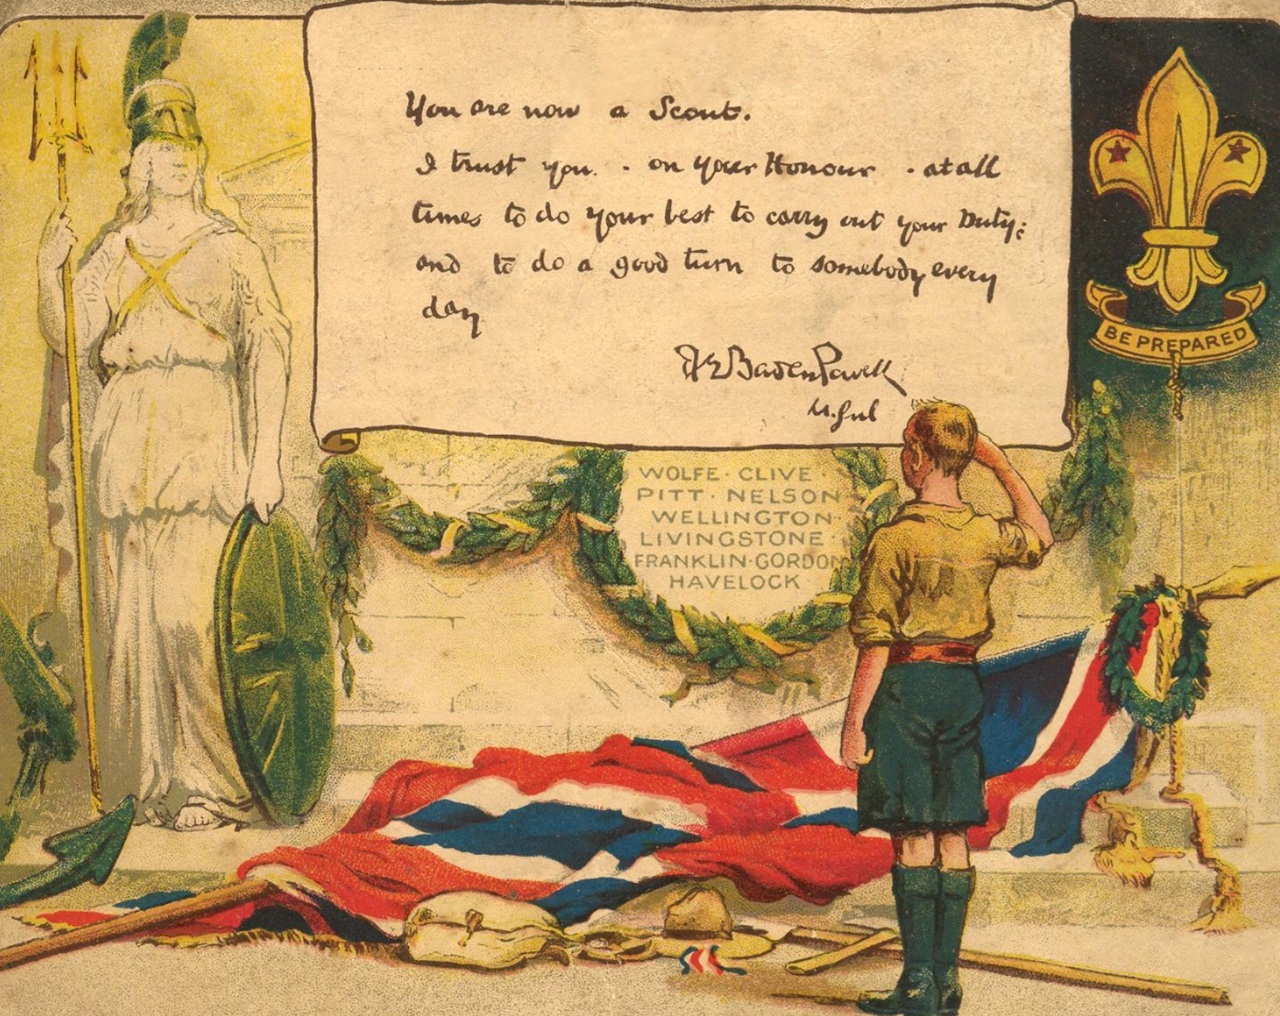 You are now a Scout.
I trust you. - on your Honour - at all
times to do your best to carry out your Duty;
and to do a good turn to somebody every
day
Baden Powell
BE PREPARED
WOLFE · CLIVE ·
PITT · NELSON
WELLINGTON ·
LIVINGSTONE ·
FRANKLIN · GORDON
HAVELOCK